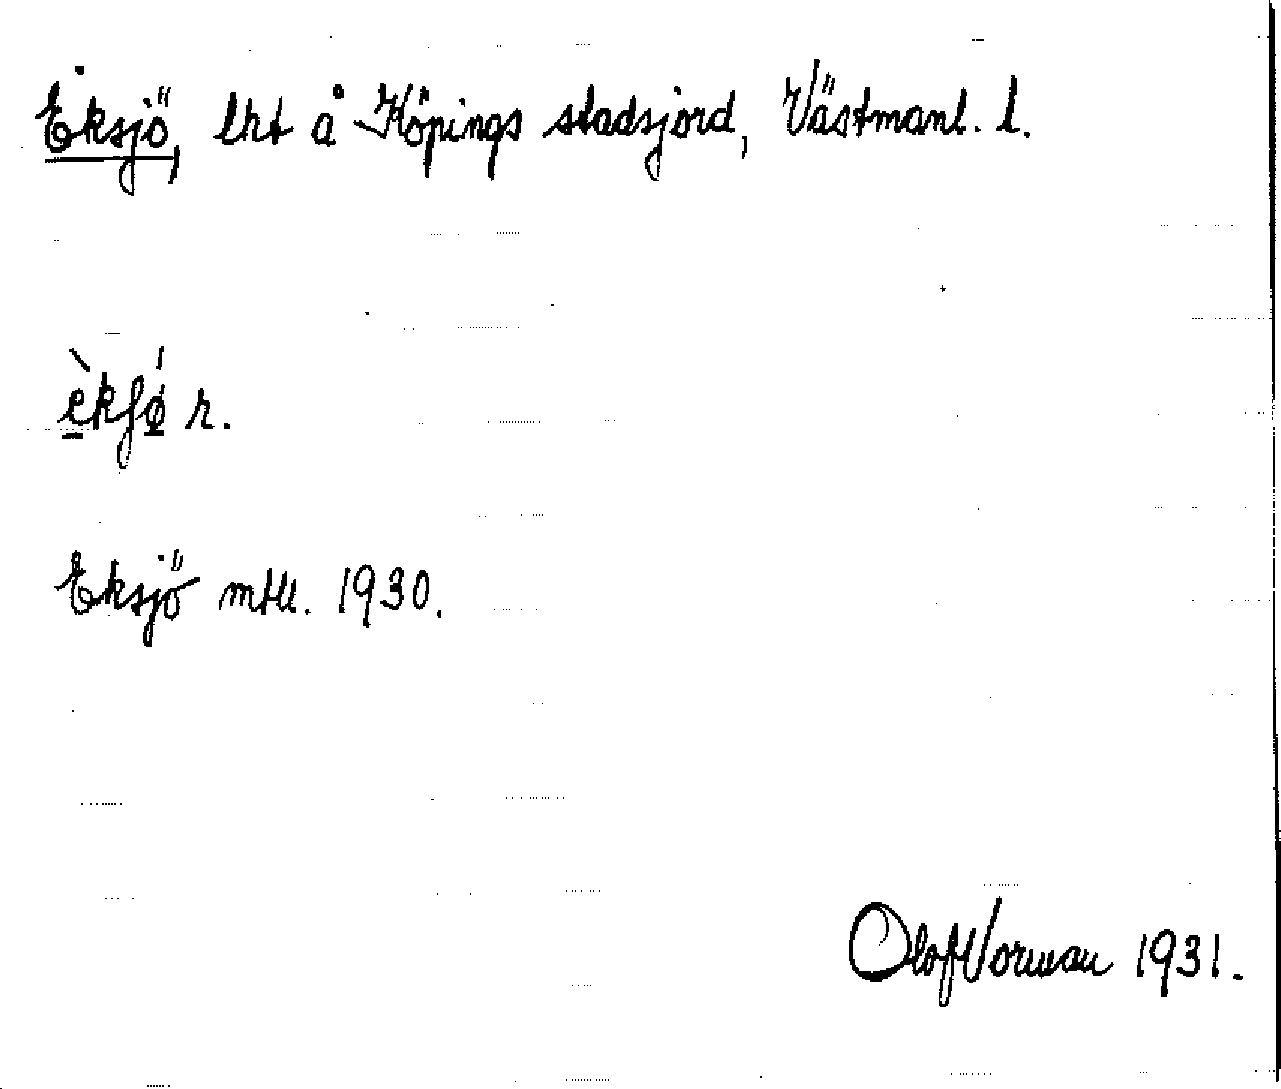 Eksjö, lht å Köpings stadsjord, Västmanl. l.
èkʃǿ r.
Eksjö mtl. 1930.
Olof Vorwau 1931.